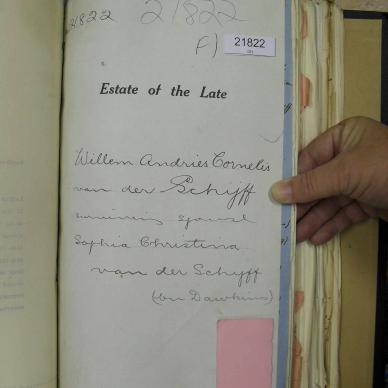 21822
21822
F) 21822
Estate of the Late
Willem Andries Cornelis
van der Schyff
surviving spouse
Sophia Christina
van der Schyff
(bn Dawkins)